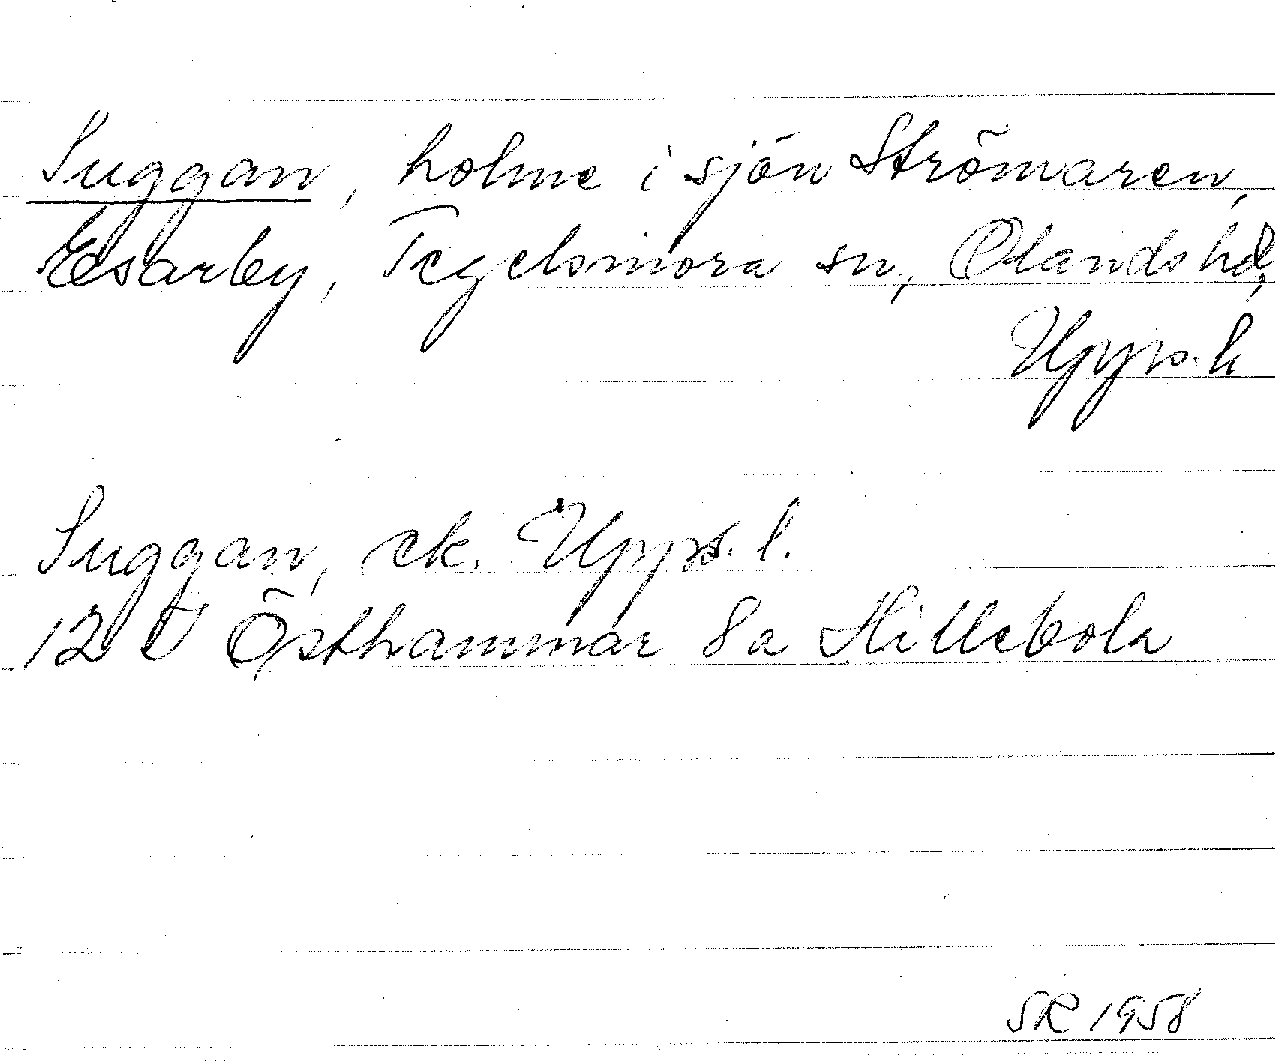 Suggan, holme i sjön Strömaren,
Elsarby, Tegelsmora sn, Olands hd,
Upps. l.
Suggan, ek. Upps. l.
12 I Östhammar 8a Hillebola
SR 1958